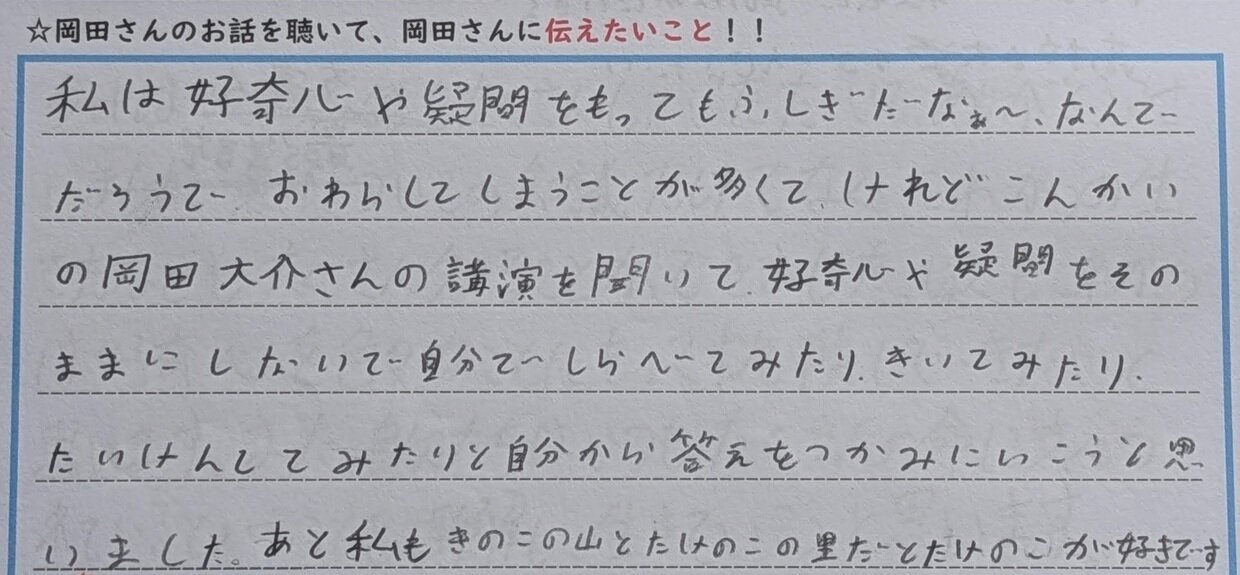 ☆岡田さんのお話を聴いて、岡田さんに伝えたいこと！！
私は好奇心や疑問をもってもふしぎだなぁ〜、なんで
だろうで、おわらしてしまうことが多くて、けれどこんかい
の岡田大介さんの講演を聞いて、好奇心や疑問をその
ままにしないで自分でしらべてみたり、きいてみたり、
たいけんしてみたりと自分から答えをつかみにいこうと思
いました。あと私もきのこの山とたけのこの里だとたけのこが好きです